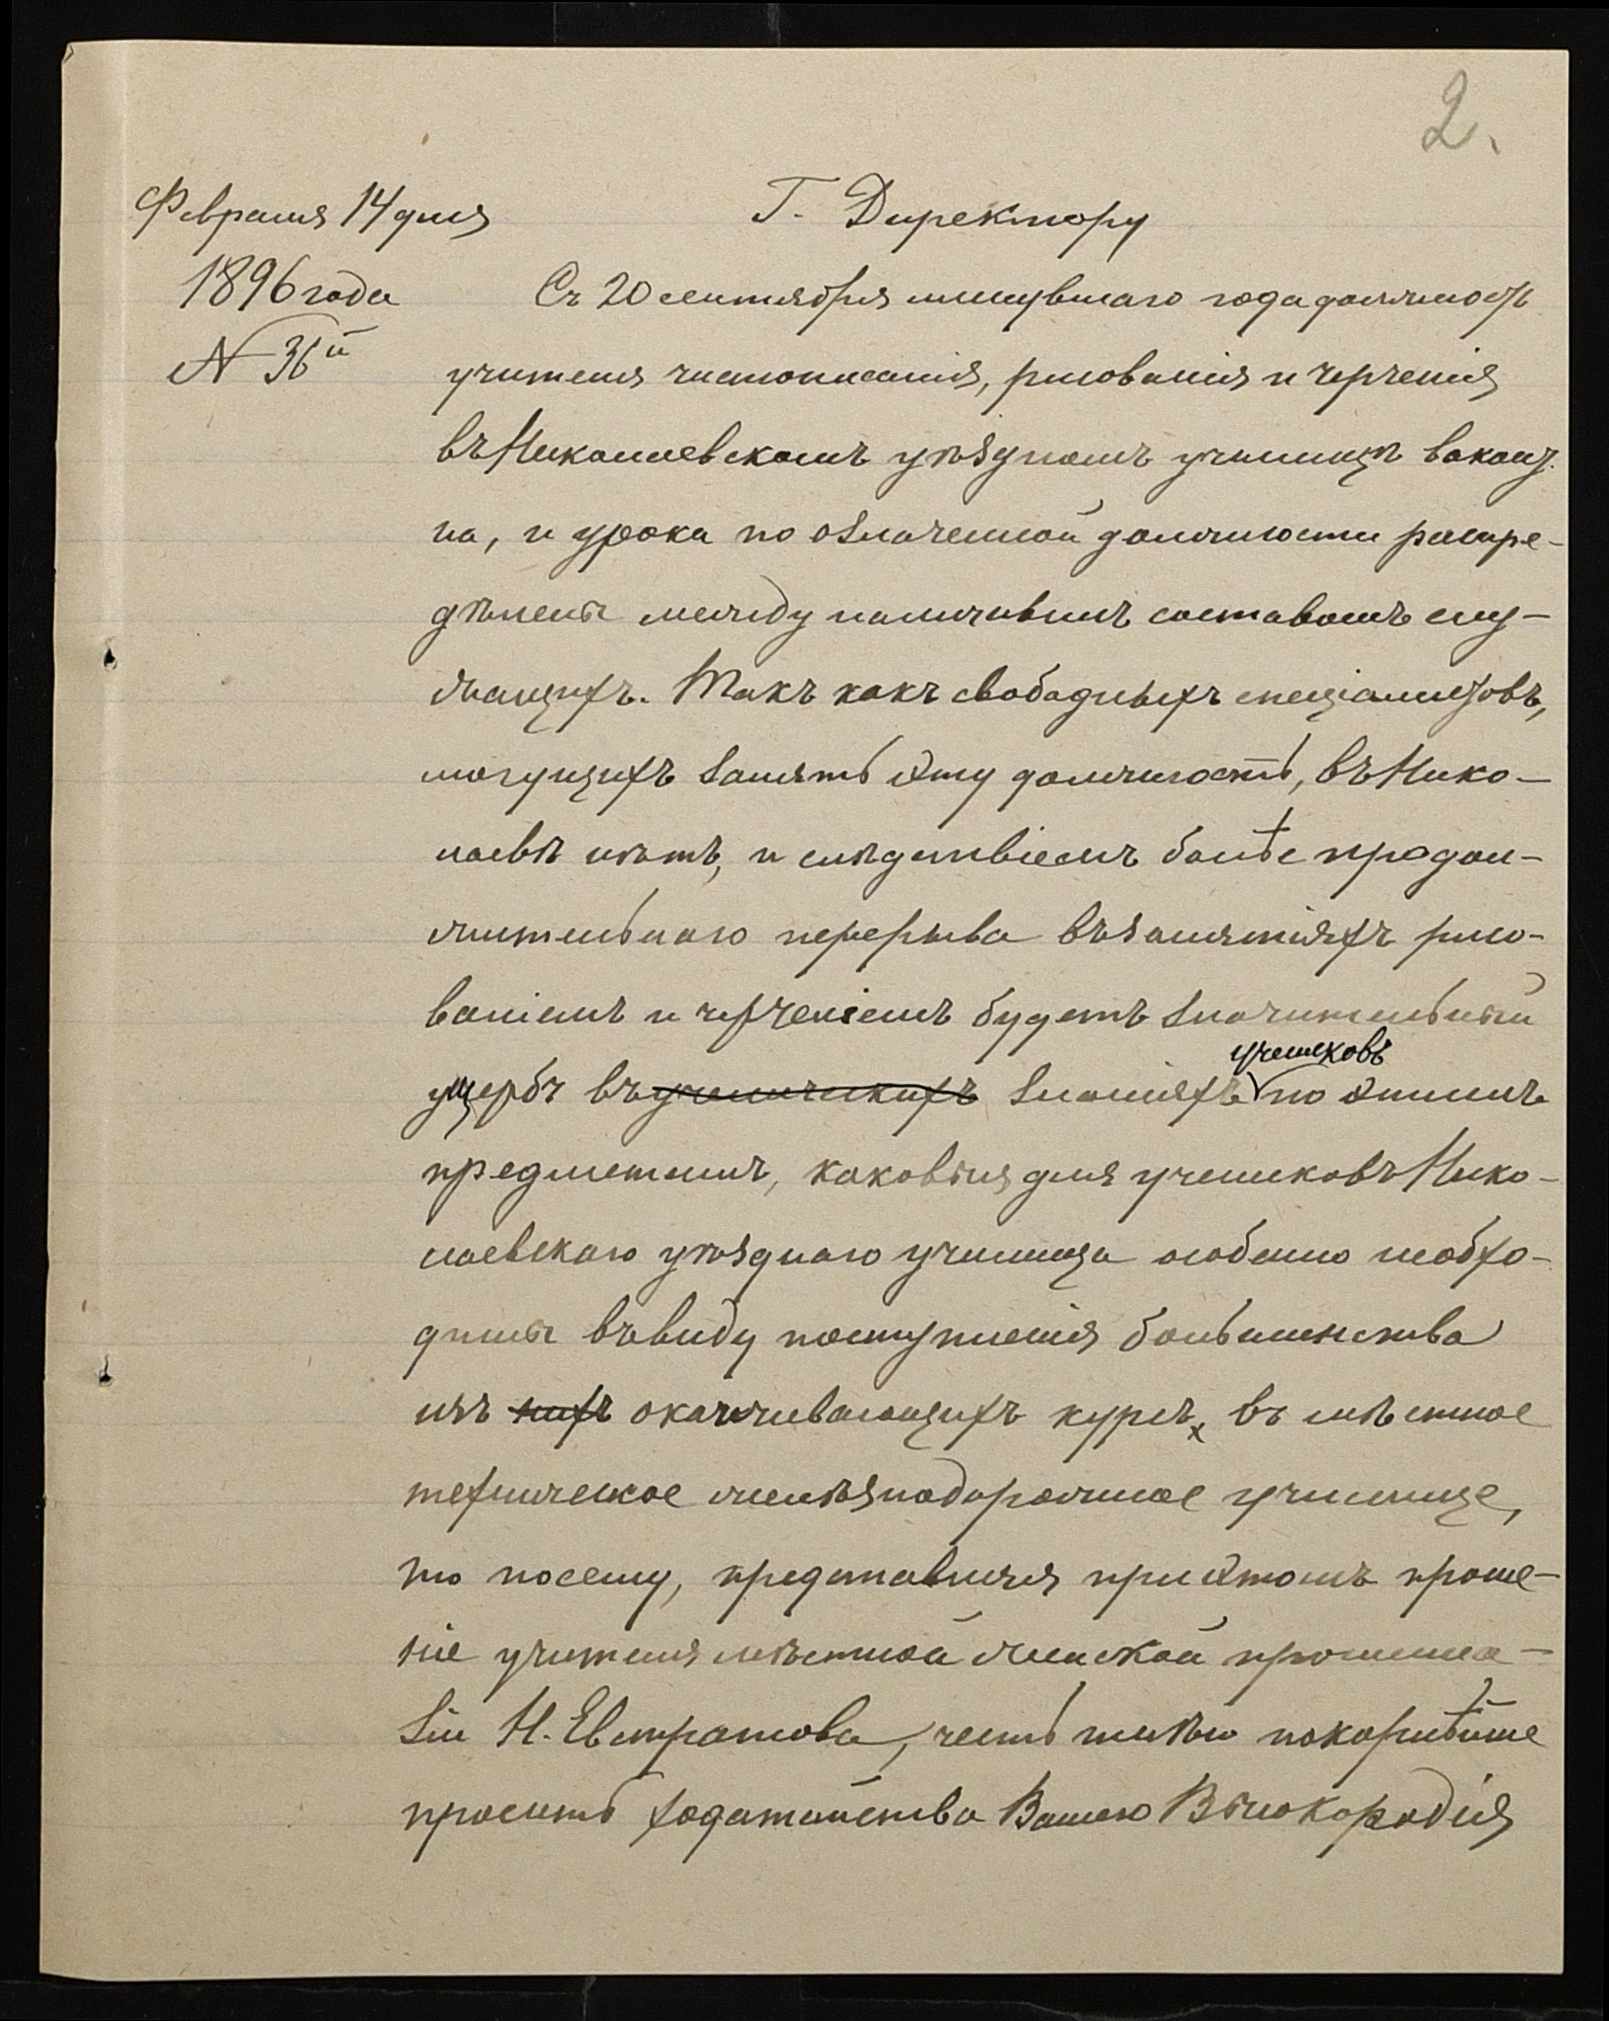 2.
Февраля 14 дня
1896 года
№ 36й
Г. Директору
Съ 20 сентября минувшаго года должность
учителя чистописанія, рисованія и черченія
въ Николаевскомъ уѣздномъ училищѣ вакант
на, и уроки по означенной должности распре-
дѣлены между наличнымъ составомъ слу-
жащихъ. Такъ какъ свободныхъ спеціалистовъ,
могущихъ занять эту должность, въ Нико-
лаевѣ нѣтъ, и слѣдствіемъ болѣе продол-
жительнаго перерыва въ занятіяхъ рисо-
ваніемъ и черченіемъ будетъ значительный
ущербъ въ ученическихъ знаніяхъ учениковъ по этимъ
предметамъ, каковыя для учениковъ Нико-
лаевскаго уѣзднаго училища особенно необхо-
димы въ виду поступленія большинства
изъ нихъ оканчивающихъ курсъ, въ мѣстное
техническое желѣзнодорожное училище,
то посему, представляя при этомъ проше-
ніе учителя мѣстной женской прогимна-
зіи Н. Евстратова, честь имѣю покорнѣйше
просить ходатайства Вашего Высокородія